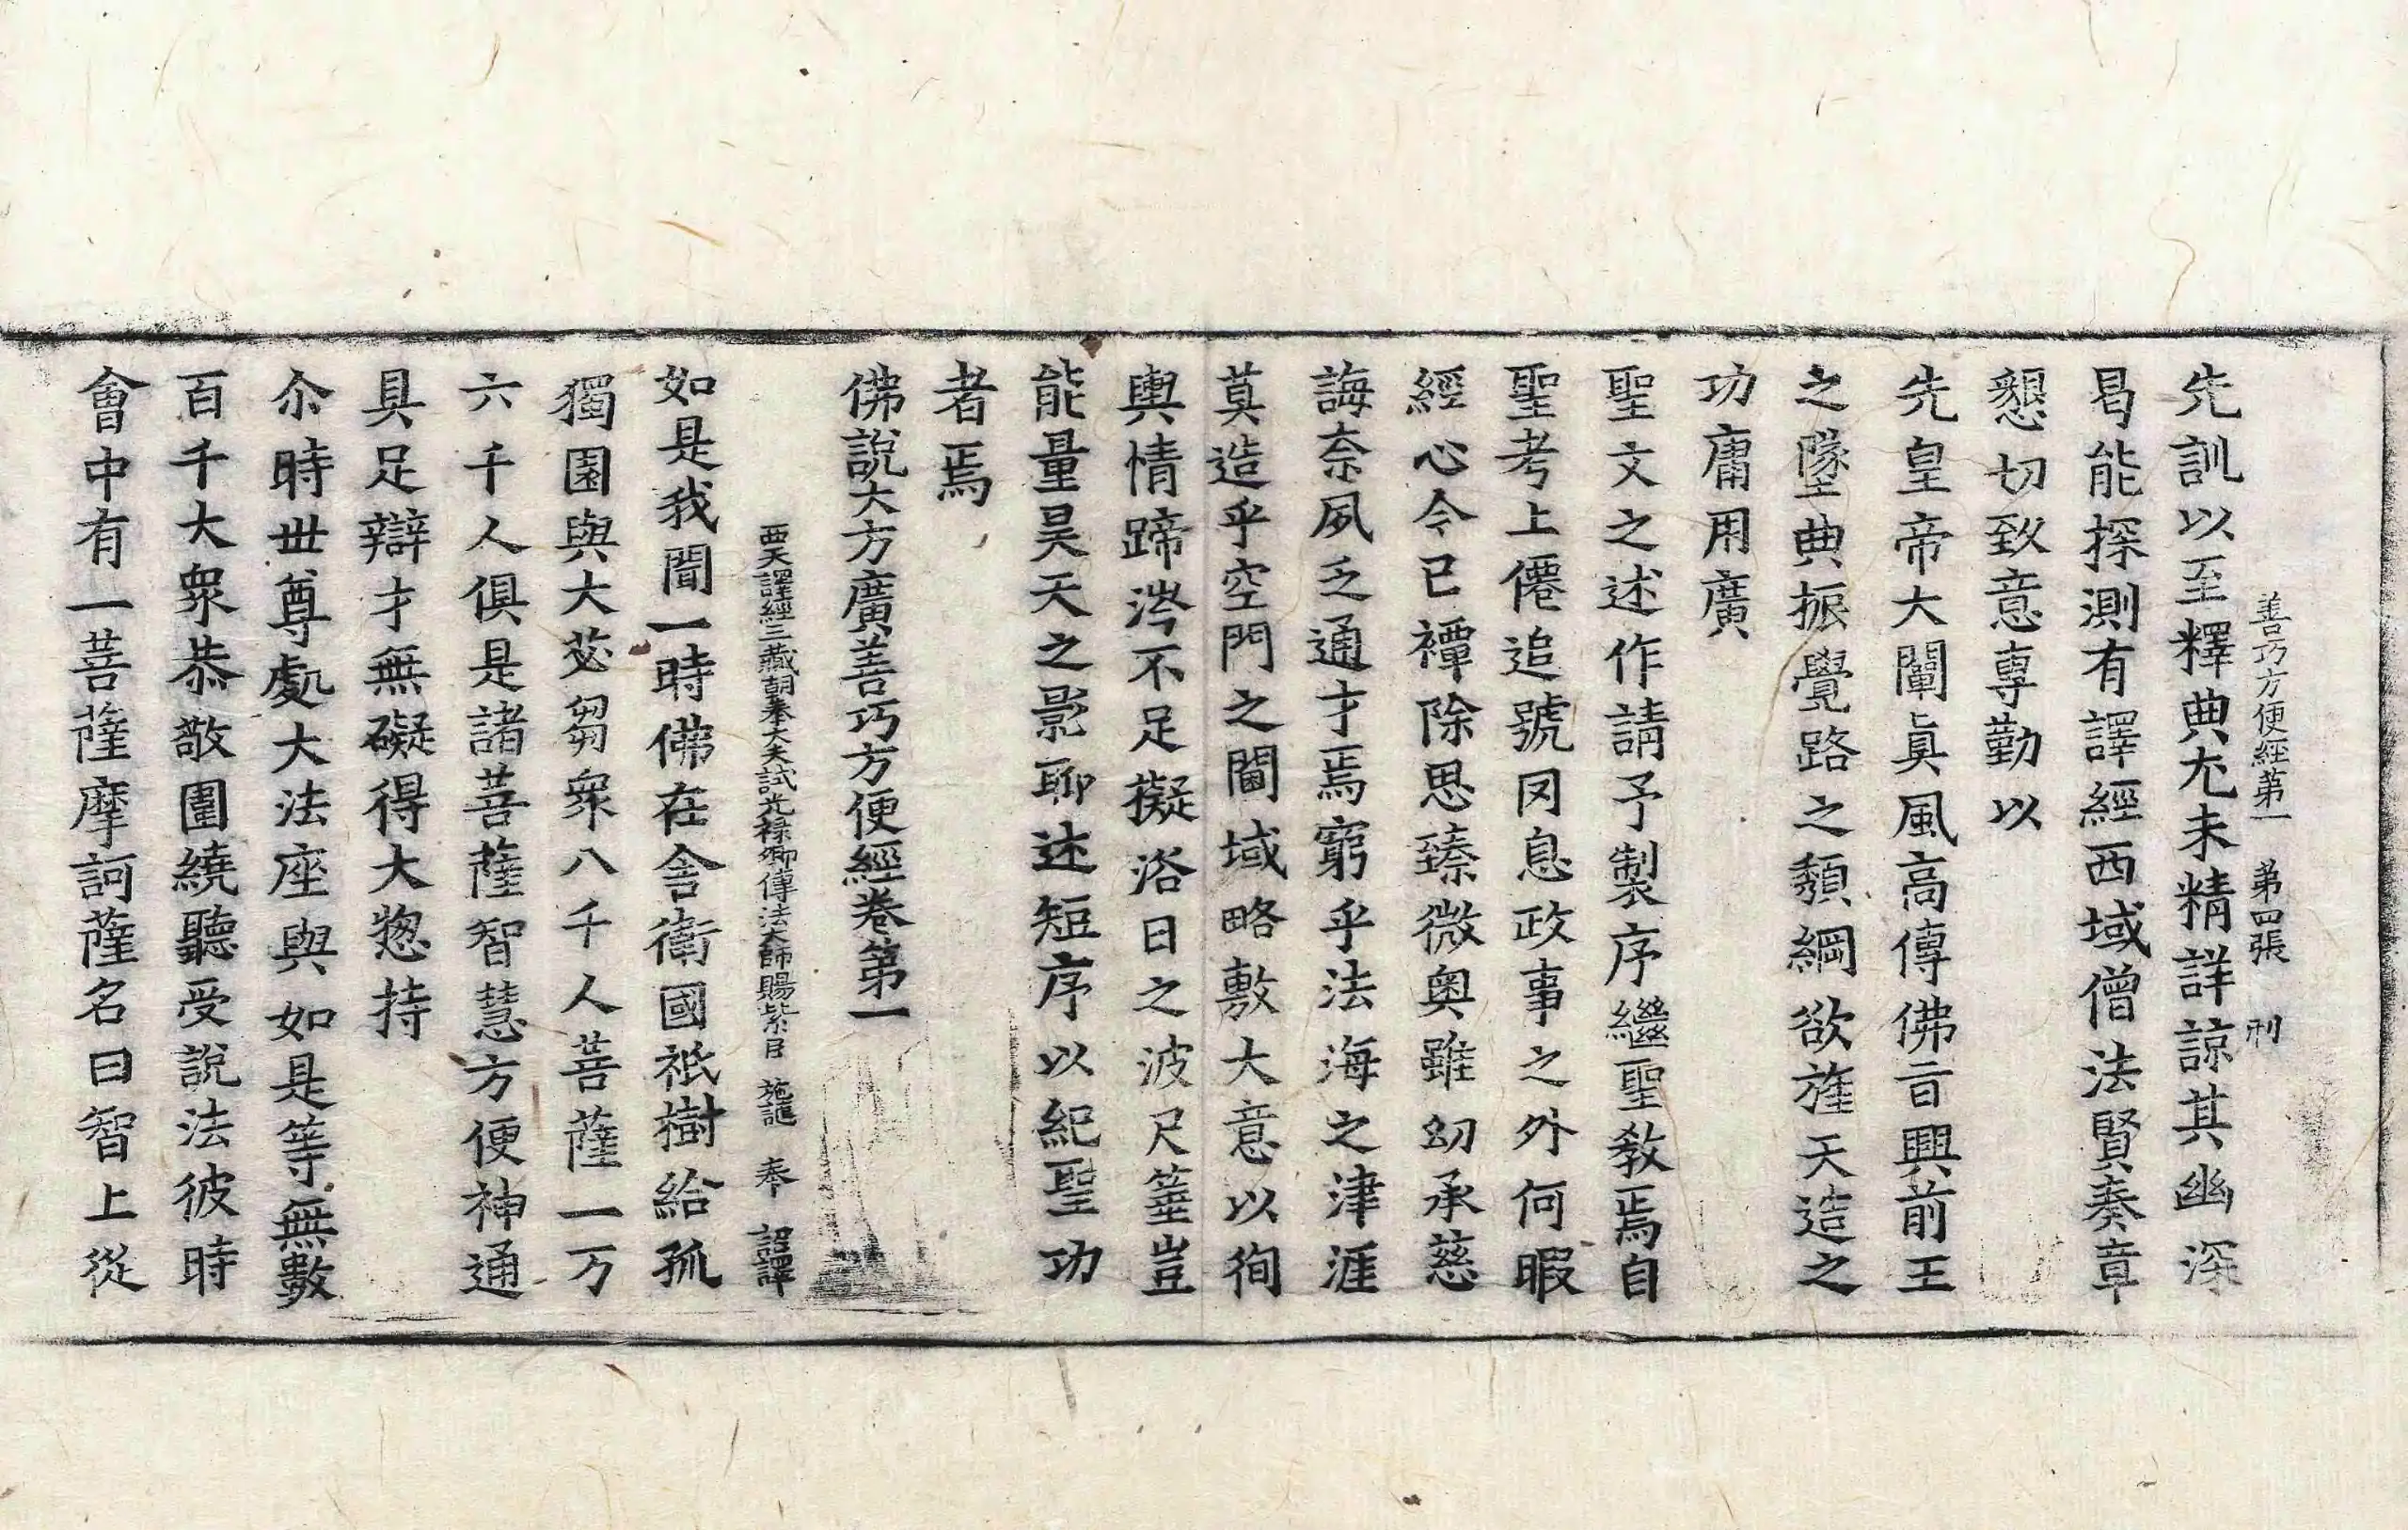 善巧方便經第一 第四張 刑
先訓以至釋典尤未精詳諒其幽深
曷能探測有譯經西域僧法賢奏章
懇切致意專勤以
先皇帝大闡眞風高傳佛旨興前王
之墜典振覺路之頹綱欲旌天造之
功庸用廣
聖文之述作請予製序繼聖教焉自
聖考上僊追號罔息政事之外何暇
經心今已禫除思臻微奥雖幼承慈
誨奈夙乏通才焉窮乎法海之津涯
莫造乎空門之閫域略敷大意以徇
輿情蹄涔不足擬浴日之波尺箠豈
能量昊天之影聊述短序以紀聖功
者焉
佛說大方廣善巧方便經卷第一
西天譯經三藏朝奉大夫試光祿卿傳法大師賜紫臣 施護 奉 詔譯
如是我聞一時佛在舍衛國祇樹給孤
獨園與大苾芻衆八千人菩薩一万
六千人俱是諸菩薩智慧方便神通
具足辯才無礙得大揔持
尒時世尊處大法座與如是等無數
百千大衆恭敬圍繞聽受說法彼時
會中有一菩薩摩訶薩名曰智上從